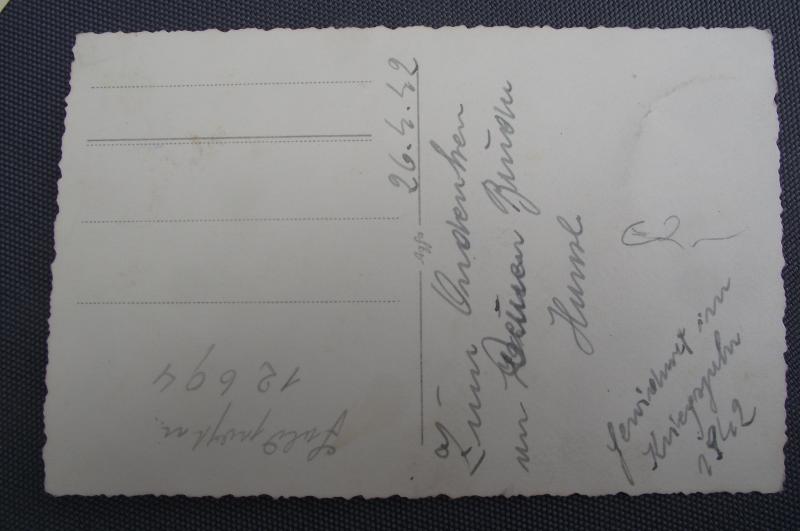 26.4.42
Zum Andenken
an Deinen Bruder
Hansl
Gewidmet im
Kriegsjahr
1942
Feldpostnr.
12694